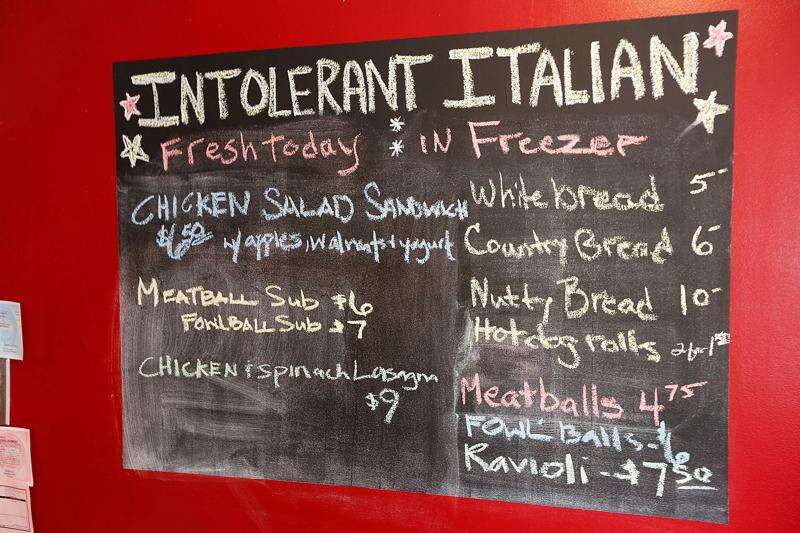 INTOLERANT ITALIAN
Fresh today
CHICKEN SALAD SANDWICH
$6.50 w/apples, walnuts & yogurt
MEATBALL Sub $6
FOWLBALL Sub $7
CHICKEN & spinach Lasagna
$9
IN Freezer
White bread 5-
Country Bread 6-
Nutty Bread 10-
Hotdog rolls
Meatballs 4.75
FOWL Balls - $6
Ravioli - $7.50